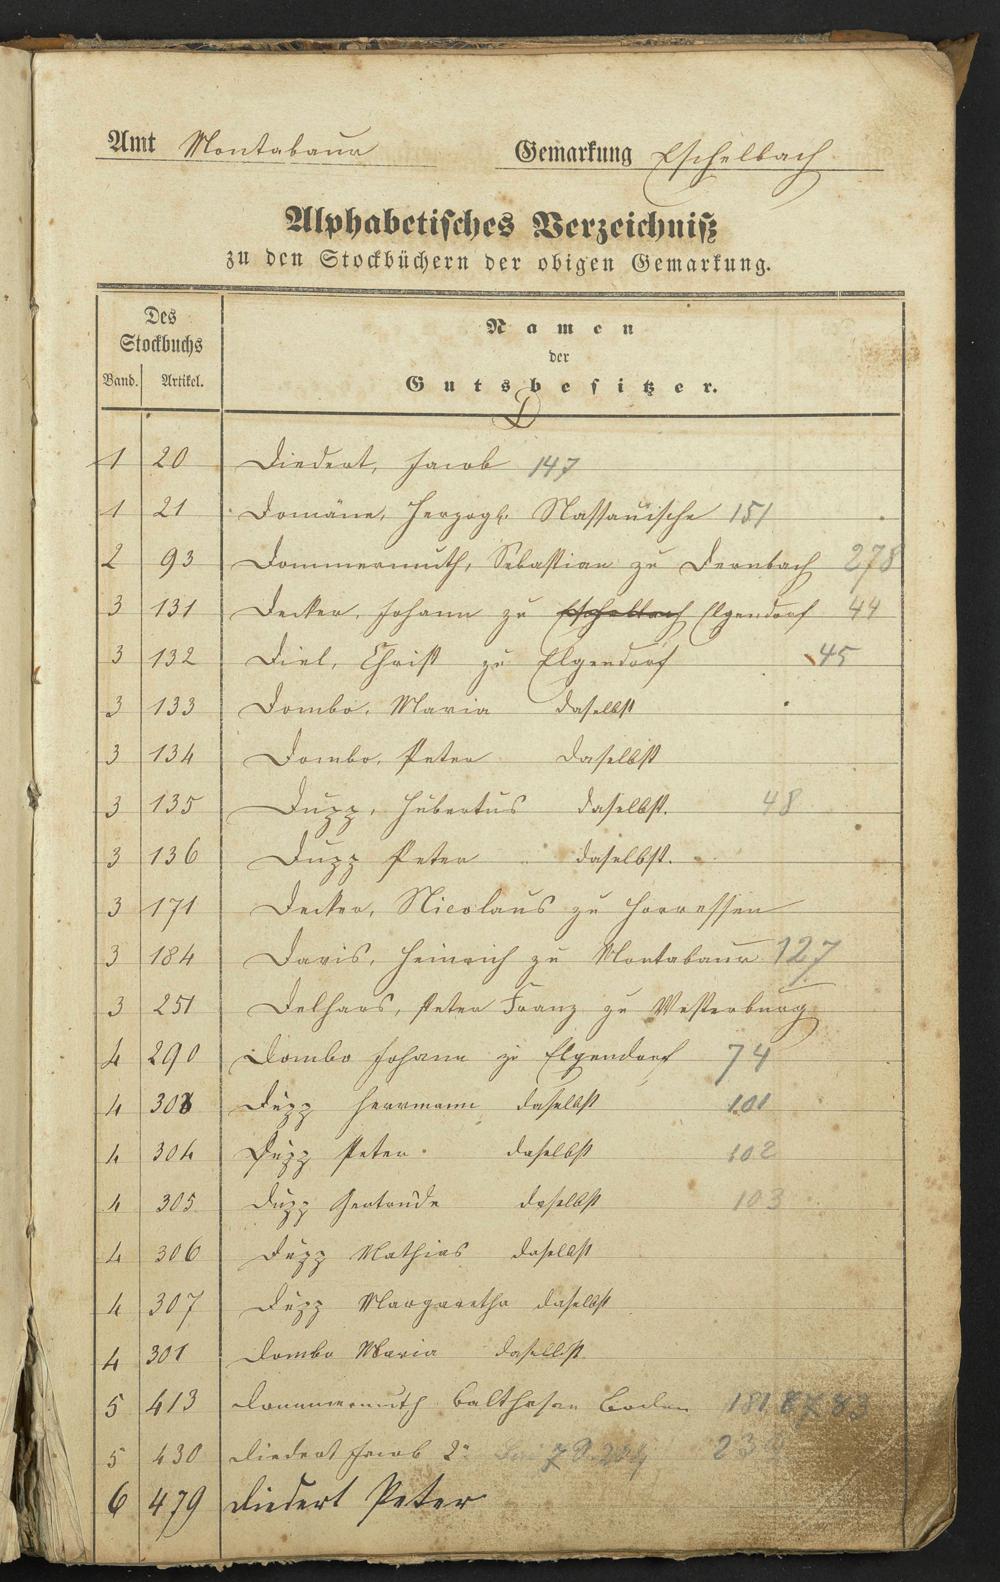 Amt Montabaur Gemarkung Eschelbach
Alphabetisches Verzeichniß
zu den Stockbüchern der obigen Gemarkung.
Des Stockbuchs
Band. Artikel.
Namen
der
Gutsbesitzer.
D
1 20 Diedert, Jacob 147
1 21 Domäne, Herzogl. Nassauische 151
2 93 Dommermuth, Sebastian zu Dernbach 278
3 131 Decker, Johann zu Eschelbach Elgendorf 44
3 132 Diel, Christ zu Elgendorf 45
3 133 Dombo, Maria daselbst
3 134 Dombo, Peter daselbst
3 135 Düpp, Hubertus daselbst. 48
3 136 Düpp Peter daselbst.
3 171 Decker, Nicolaus zu Horressen
3 184 Davis, Heinrich zu Montabaur 127
3 251 Delhaes, Peter Franz zu Westerburg
4 290 Dombo Johann zu Elgendorf 74
4 303 Düpp Herrmann daselbst 101
4 304 Düpp Peter daselbst 102
4 305 Düpp Gertrude daselbst 103
4 306 Düpp Mathias daselbst
4 307 Düpp Margaretha daselbst
4 301 Dombo Maria daselbst
5 413 Dommermuth Balthasar Boden 181 83
5 430 Diedert Jacob 2r
6 479 Diedert Peter